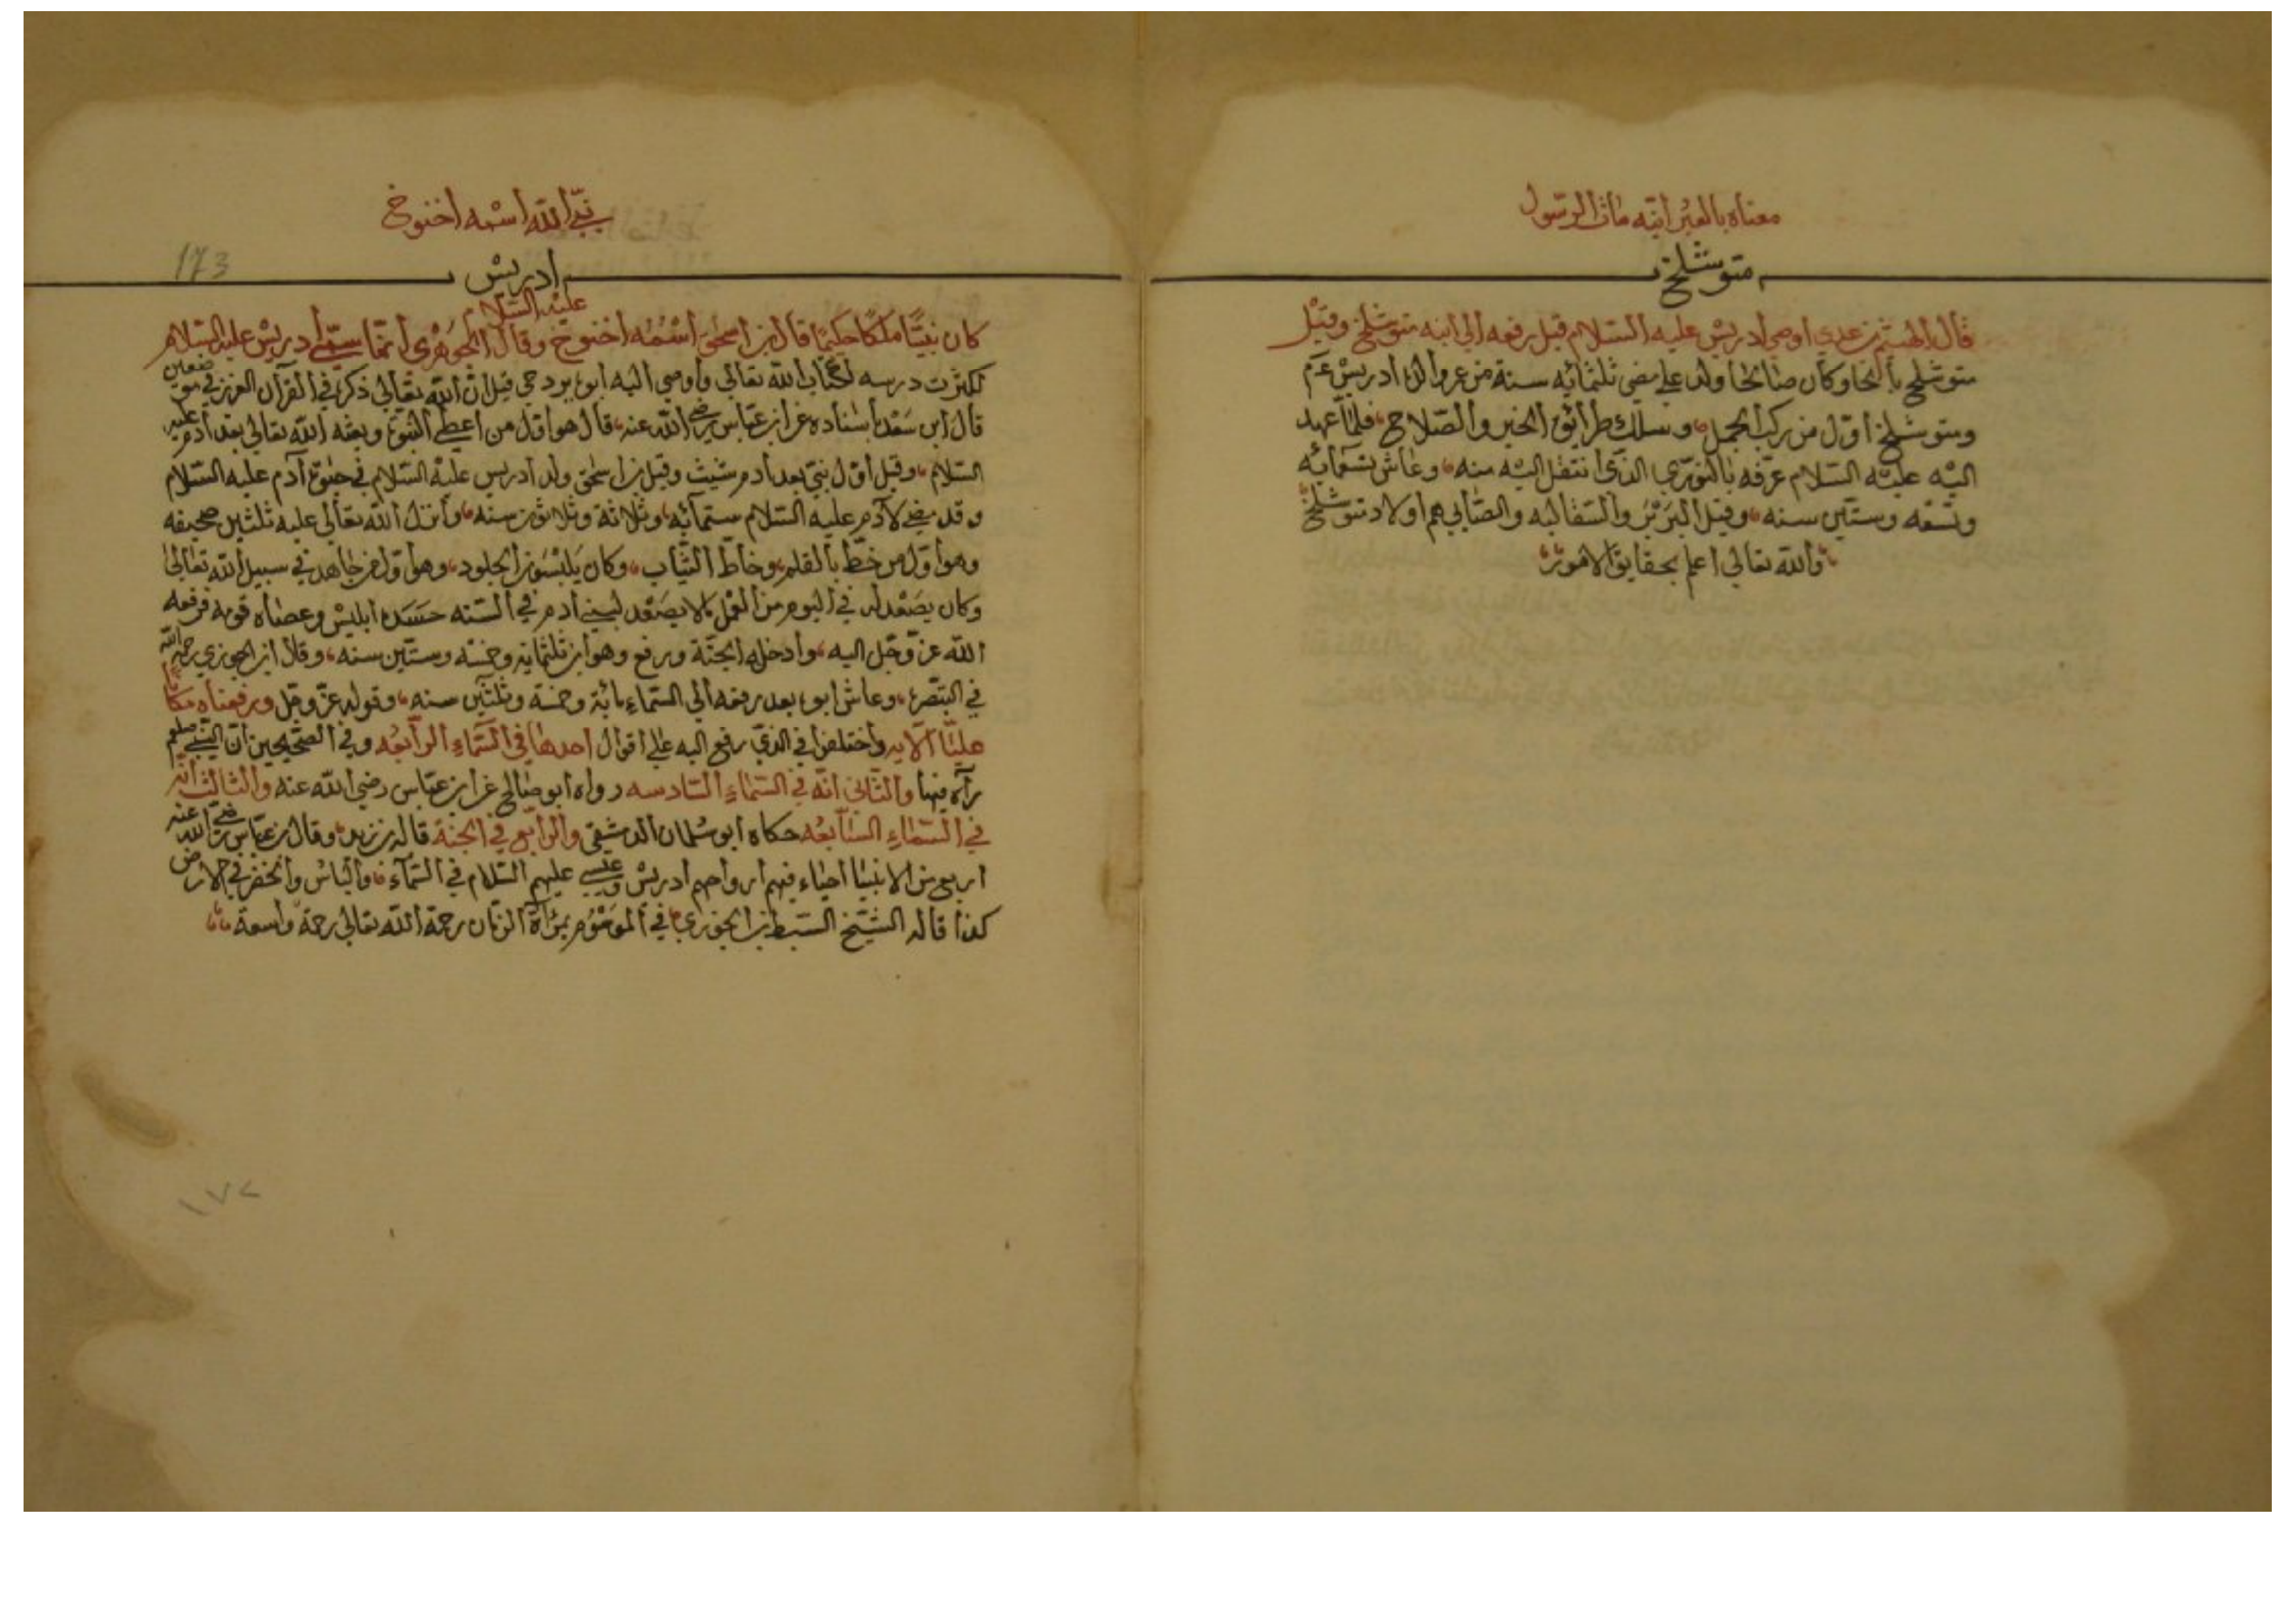 معناه بالعبرانيه مات الرسول
متوشلخ
قال الهيثم بن عدي اوصى ادريس عليه السلام قبل رفعه الى ابنه متوشلخ وقيل
متوشلح بالحا وكان صالحا ولد على مضي ثلثمائه سنة من عمر والده ادريس عم
ومتوشلخ اول من ركب الجمل وسلك طرائق الخير والصلاح فلما عهد
اليه عليه السلام عرفه بالنور الذي انتقل اليه منه وعاش تسعمائه
وتسعه وستين سنه وقيل البربر والسقالبه والصابي هم اولاد متوشلخ
والله تعالى اعلم بحقايق الامور
نبي الله اسمه اخنوخ
173
ادريس
عليه السلام
كان نبيا ملكا حكيما قال ابن اسحق اسمه اخنوخ وقال الجوهري انما سمي ادريس عليه السلام
لكثرت درسه لكتاب الله تعالى واوصى اليه ابوه يرد حي قيل ان الله تعالى ذكره في القرآن العزيز في موضعين
قال ابن سعد باسناده عن ابن عباس رضي الله عنه قال هو اول من اعطي النبوة وبعثه الله تعالى بعد آدم عليه
السلام وقيل اول نبي بعد ادم شيث وقيل ابن اسحق ولد ادريس عليه السلام في حيوة آدم عليه السلام
وقد مضى لآدم عليه السلام ستمائه وثلاثة وثلاثون سنه وانزل الله تعالى عليه ثلثين صحيفه
وهو اول من خط بالقلم وخاط الثياب وكان يلبسون الجلود وهو اول من جاهد في سبيل الله تعالى
وكان يصعد له في اليوم من العمل ما لا يصعد لبني ادم في السنه حسده ابليس وعصاه قومه فرفعه
الله عز وجل اليه وادخله الجنة ورفع وهو ابن ثلثمايه وخمسه وستين سنه وقال ابن الجوزي رحمه الله
في التبصرة وعاش ابوه بعد رفعه الى السماء مائة وخمسة وثلثين سنه وقوله عز وجل ورفعناه مكانا
عليا الآيه واختلفوا في الذي رفع اليه على اقوال احدها في السماء الرابعه وفي الصحيحين ان النبي صلعم
رآه فيها والثاني انه في السماء السادسه رواه ابو صالح عن ابن عباس رضي الله عنه والثالث انه
في السماء السابعه حكاه ابو سلمان الدمشقي والرابع في الجنة قاله بن زيد وقال بن عباس رضي الله عنه
اربع من الانبيا احياء فيهم ارواحهم ادريس وعيسى عليهم السلام في السماء والياس والخضر في الارض
كذا قاله الشيخ السبط ابن الجوزي في الموسوم بمرآة الزمان رحمة الله تعالى رحمة واسعة
١٧٢